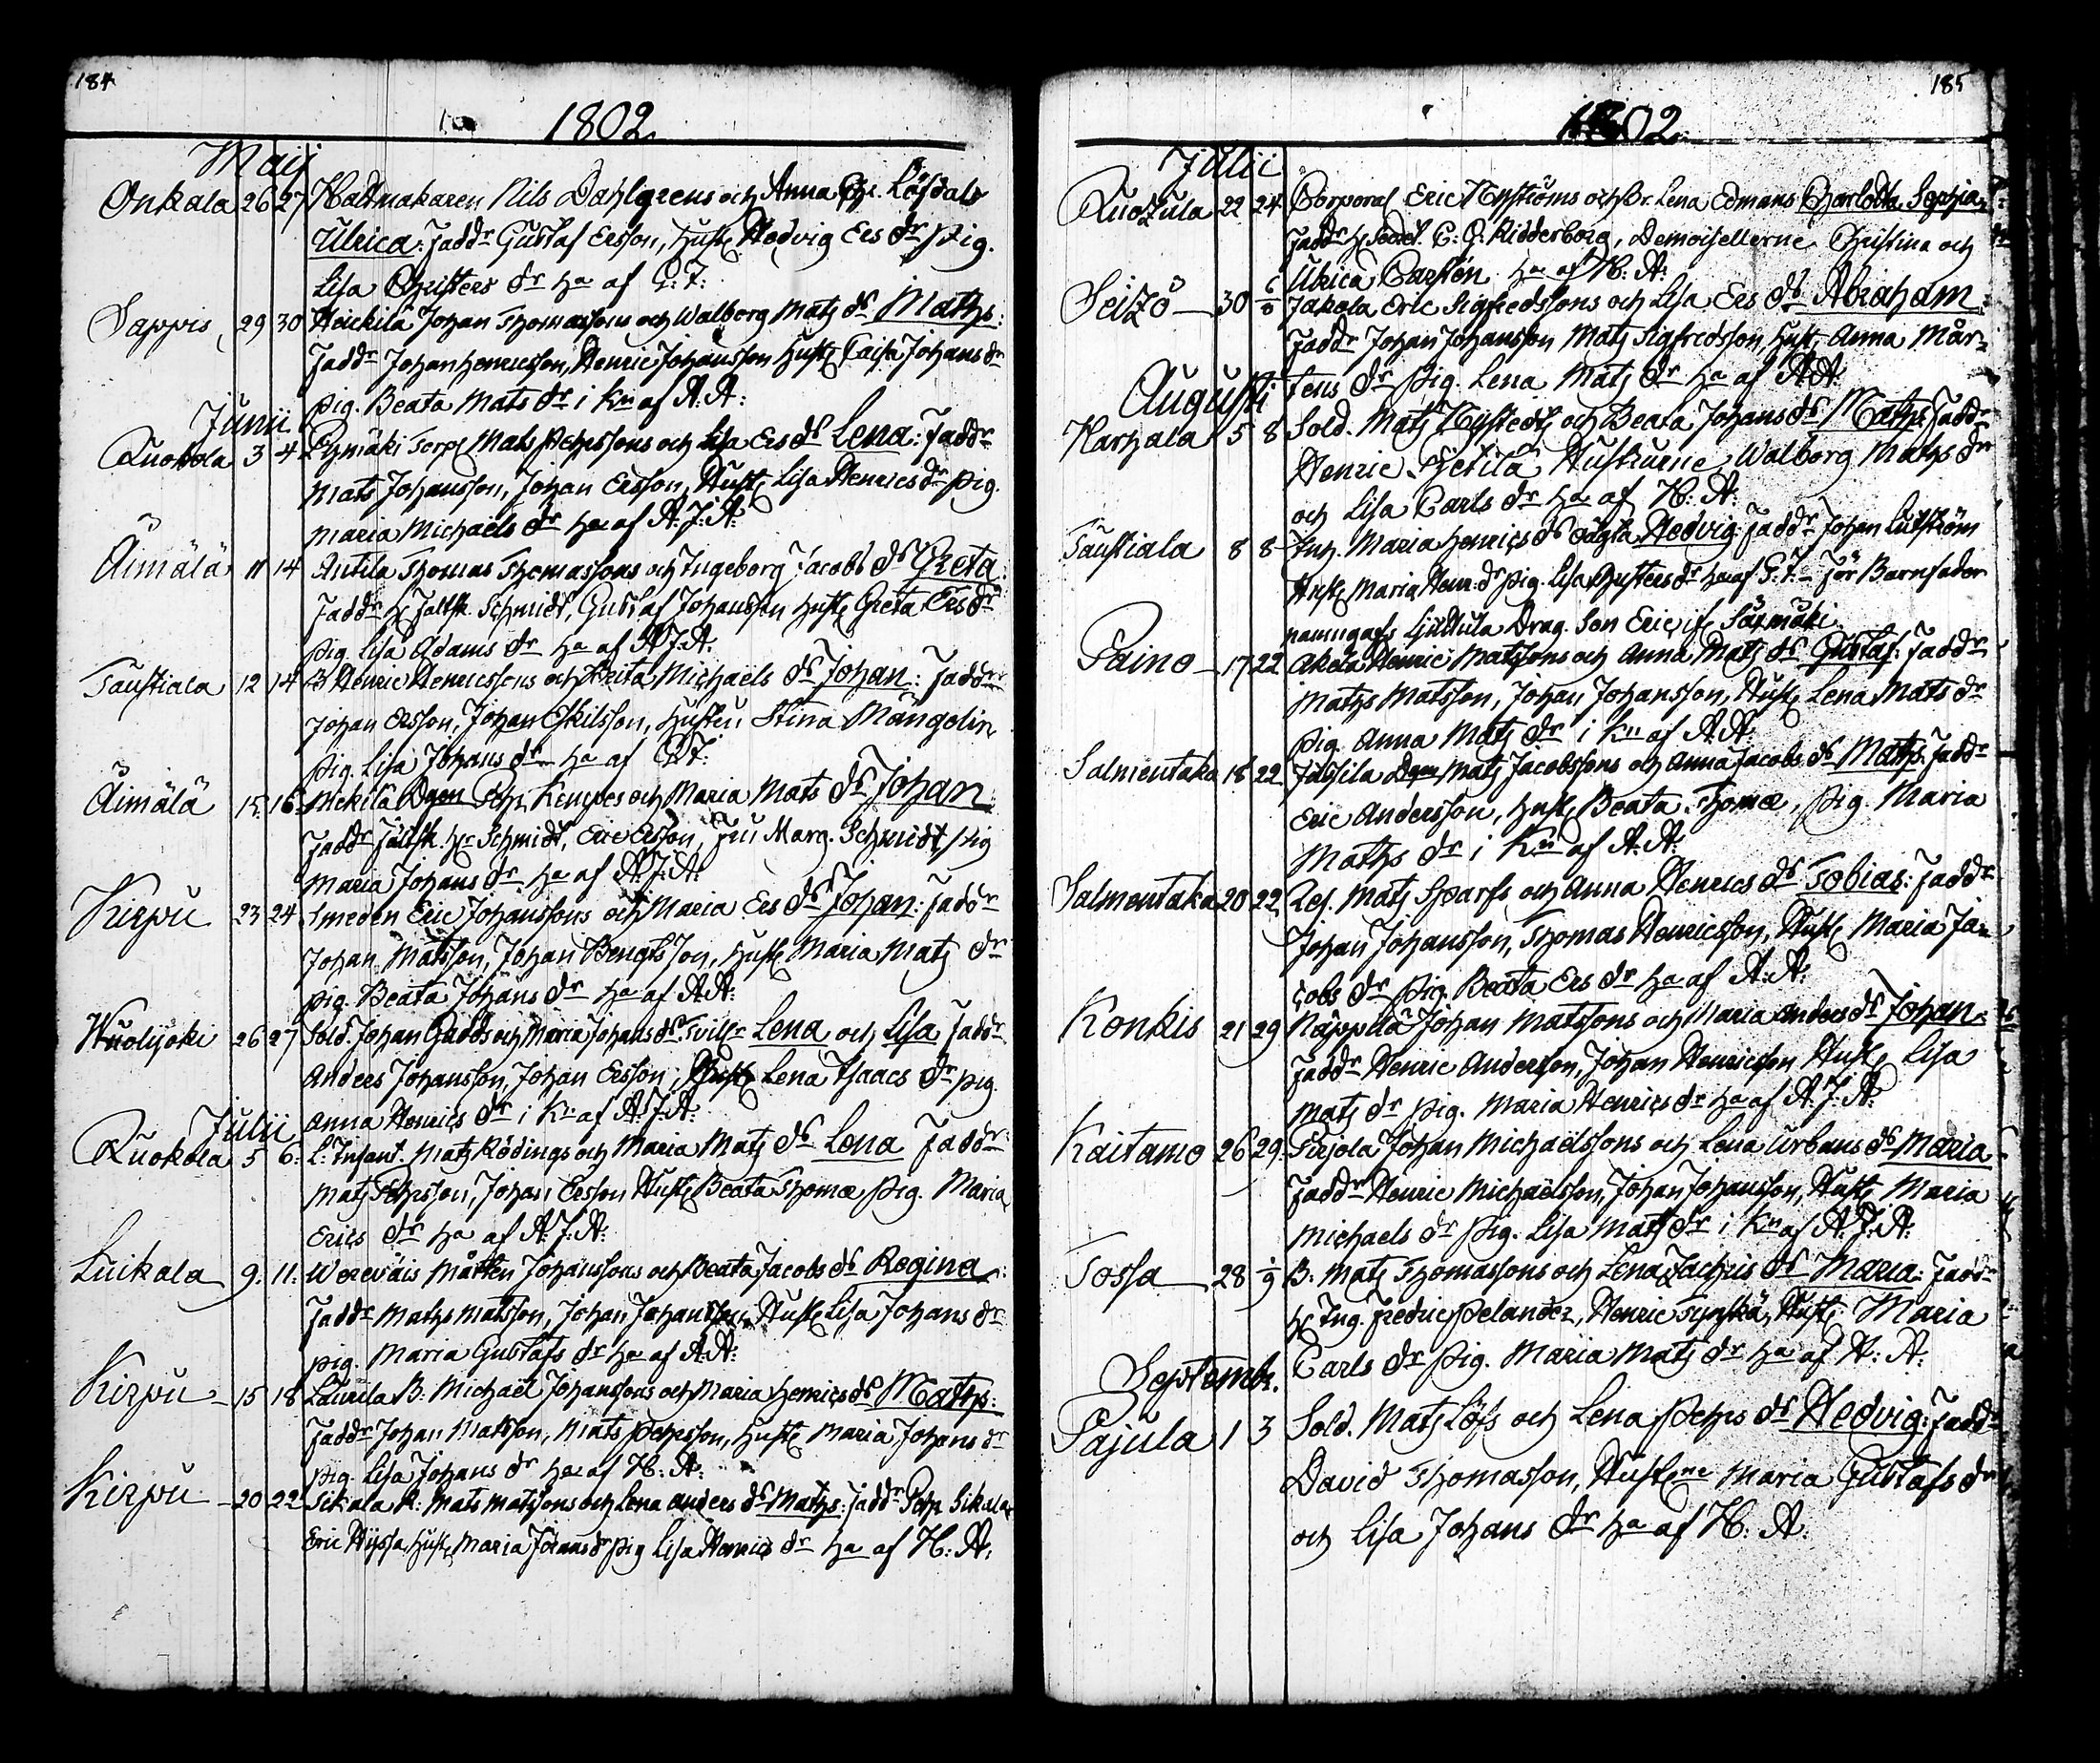 184
1802
Maij
Onkala 26 27 Hattmakaren Nils Dahlgrens och Anna Chr. Löfdals
Ulrica: Faddr Gustaf Ersson, Hust. Hedvig Ers dr pig.
Lisa Christers dr ha af G: F:
Sappis 29 30 Heickilä Johan Thomassons och Walborg Mats ds Mathz:
Faddr Johan Henricsson, Henric Johansson Hust. Caisa Johans dr
pig. Beata Mats dr i Kn af A: A:
Junii
Kuokola 3 4 Torp. Mats Pehrssons och Lisa Ers ds Lena: Faddr
Mats Johansson, Johan Ersson, Hust. Lisa Henrics dr pig.
Maria Michaels dr ha af A: J: A:
Äimälä 11 14 Antila Thomas Thomassons och Ingeborg Jacobs ds Greta:
Faddr H Fältsk. Schmidt, Gustaf Johansson Hust. Greta Ers dr
pig. Lisa Adams dr ha af A: J: A:
Taustiala 12 14 B Henric Henricssons och Brita Michaels ds Johan: Faddr
Johan Ersson, Johan Eskilsson, Hustru Stina Mångolin
pig. Lisa Johans dr ha af G: F:
Äimälä 15 16 Mickilä Dgon Pehr Kempes och Maria Mats ds Johan
Faddr Fältsk. Hr Schmidt, Eric Ersson, Fru Marg. Schmidt pig
Maria Johans dr ha af A: J: A:
Kirpu 23 24 Smeden Eric Johanssons och Maria Ers ds Johan: Faddr
Johan Matsson, Johan Bengtsson, Hust. Maria Mats dr
pig. Beata Johans dr ha af A: A:
Wuolijoki 26 27 Sold. Johan Gadds och Maria Johans ds Tvillr Lena och Lisa Faddr
Anders Johansson, Johan Ersson, Hust. Lena Isaacs dr pig.
Anna Henrics dr i Kn af A: J: A:
Julii
Kuokola 5 6 L: Infant. Mats Rödings och Maria Mats ds Lena Faddr
Mats Pehrsson, Johan Ersson Hust. Beata Thomæ pig. Maria
Erics dr ha af A: J: A:
Luikala 9. 11. Werewäis Mårten Johanssons och Beata Jacobs ds Regina:
Faddr Mathz Matsson, Johan Johansson, Hust. Lisa Johans dr
pig. Maria Gustafs dr ha af A: A:
Kirpu 15 18 Laurila B: Michael Johanssons och Maria Henrics ds Mathz:
Faddr Johan Matsson, Mats Pehrsson, Hust. Maria Johans dr
pig. Lisa Johans dr ha af H: A:
Kirpu 20 22 Sikala R: Mats Matssons och Lena Anders ds Mathz: Faddr Pehr Sikala
Eric Hyssa Hust. Maria Johans dr pig Lisa Henrics dr ha af H: A:
185
1802
Julii
Kuoxula 22 24 Corporal Eric Nyströms och Br. Lena Edmans Charlotta Sophia
Faddr H Secret. C: G: Ridderborg, Demoisellerne Christina och
Ulrica Carstén ha af H: A:
Seizö 30 Jakola Eric Sigfredssons och Lisa Ers ds Abraham:
Faddr Johan Johansson Mats Sigfredsson, Hust. Anna Mår-
tens dr pig. Lena Mats dr ha af A: A:
Augusti
Karhala 5 8 Sold. Mats Nystedts och Beata Johans ds Mathz Faddr
Henric Jetilä Hustrurne Walborg Mathz dr
och Lisa Carls dr ha af H: A:
Taustiala 8 8 Inh. Maria Henrics ds oägta Hedvig: Faddr Johan Lutström
Hust. Maria Henr: dr pig. Lisa Christers dr ha af G: F: För Barnfader
namngafs Drag. Son Eric if
Paino 17 22 Akela Henric Matssons och Anna Mats ds Gustaf: Faddr
Mathz Matsson, Johan Johansson, Hust. Lena Mats dr
pig. Anna Mats dr i Kn af A: A:
Salmentaka 18 22 Jussila Dgon Mats Jacobssons och Anna Jacobs ds Mathz Faddr
Eric Andersson, Hust. Beata Thomæ, pig. Maria
Mathz dr i Kn af A: A:
Salmentaka 20 22 Res. Mats Sparfs och Anna Henrics ds Tobias: Faddr
Johan Johansson, Thomas Henricsson, Hust. Maria Ja-
cobs dr pig. Beata Ers dr ha af A: A:
Konkis 21 29 Käppilä Johan Matssons och Maria Anders ds Johan:
Faddr Henric Andersson, Johan Henricsson Hust. Lisa
Mats dr pig. Maria Henrics dr ha af A: J: A:
Kaitamo 26 29. Pirjola Johan Michaelssons och Lena Urbans ds Maria
Faddr Henric Michaelsson, Johan Johansson, Hust. Maria
Michaels dr pig. Lisa Mats dr i Kn af A: J: A:
Tossa 28 1/9 B: Mats Thomassons och Lena Zachris ds Maria: Faddr
H Ing. Fredric Pelander, Henric Hust. Maria
Carls dr pig. Maria Mats dr ha af H: A:
Septembr.
Pajula 1 3 Sold. Mats Löfs och Lena Pehrs ds Hedvig: Faddr
David Thomasson, Hustrne Maria Gustafs dr
och Lisa Johans dr ha af H: A: